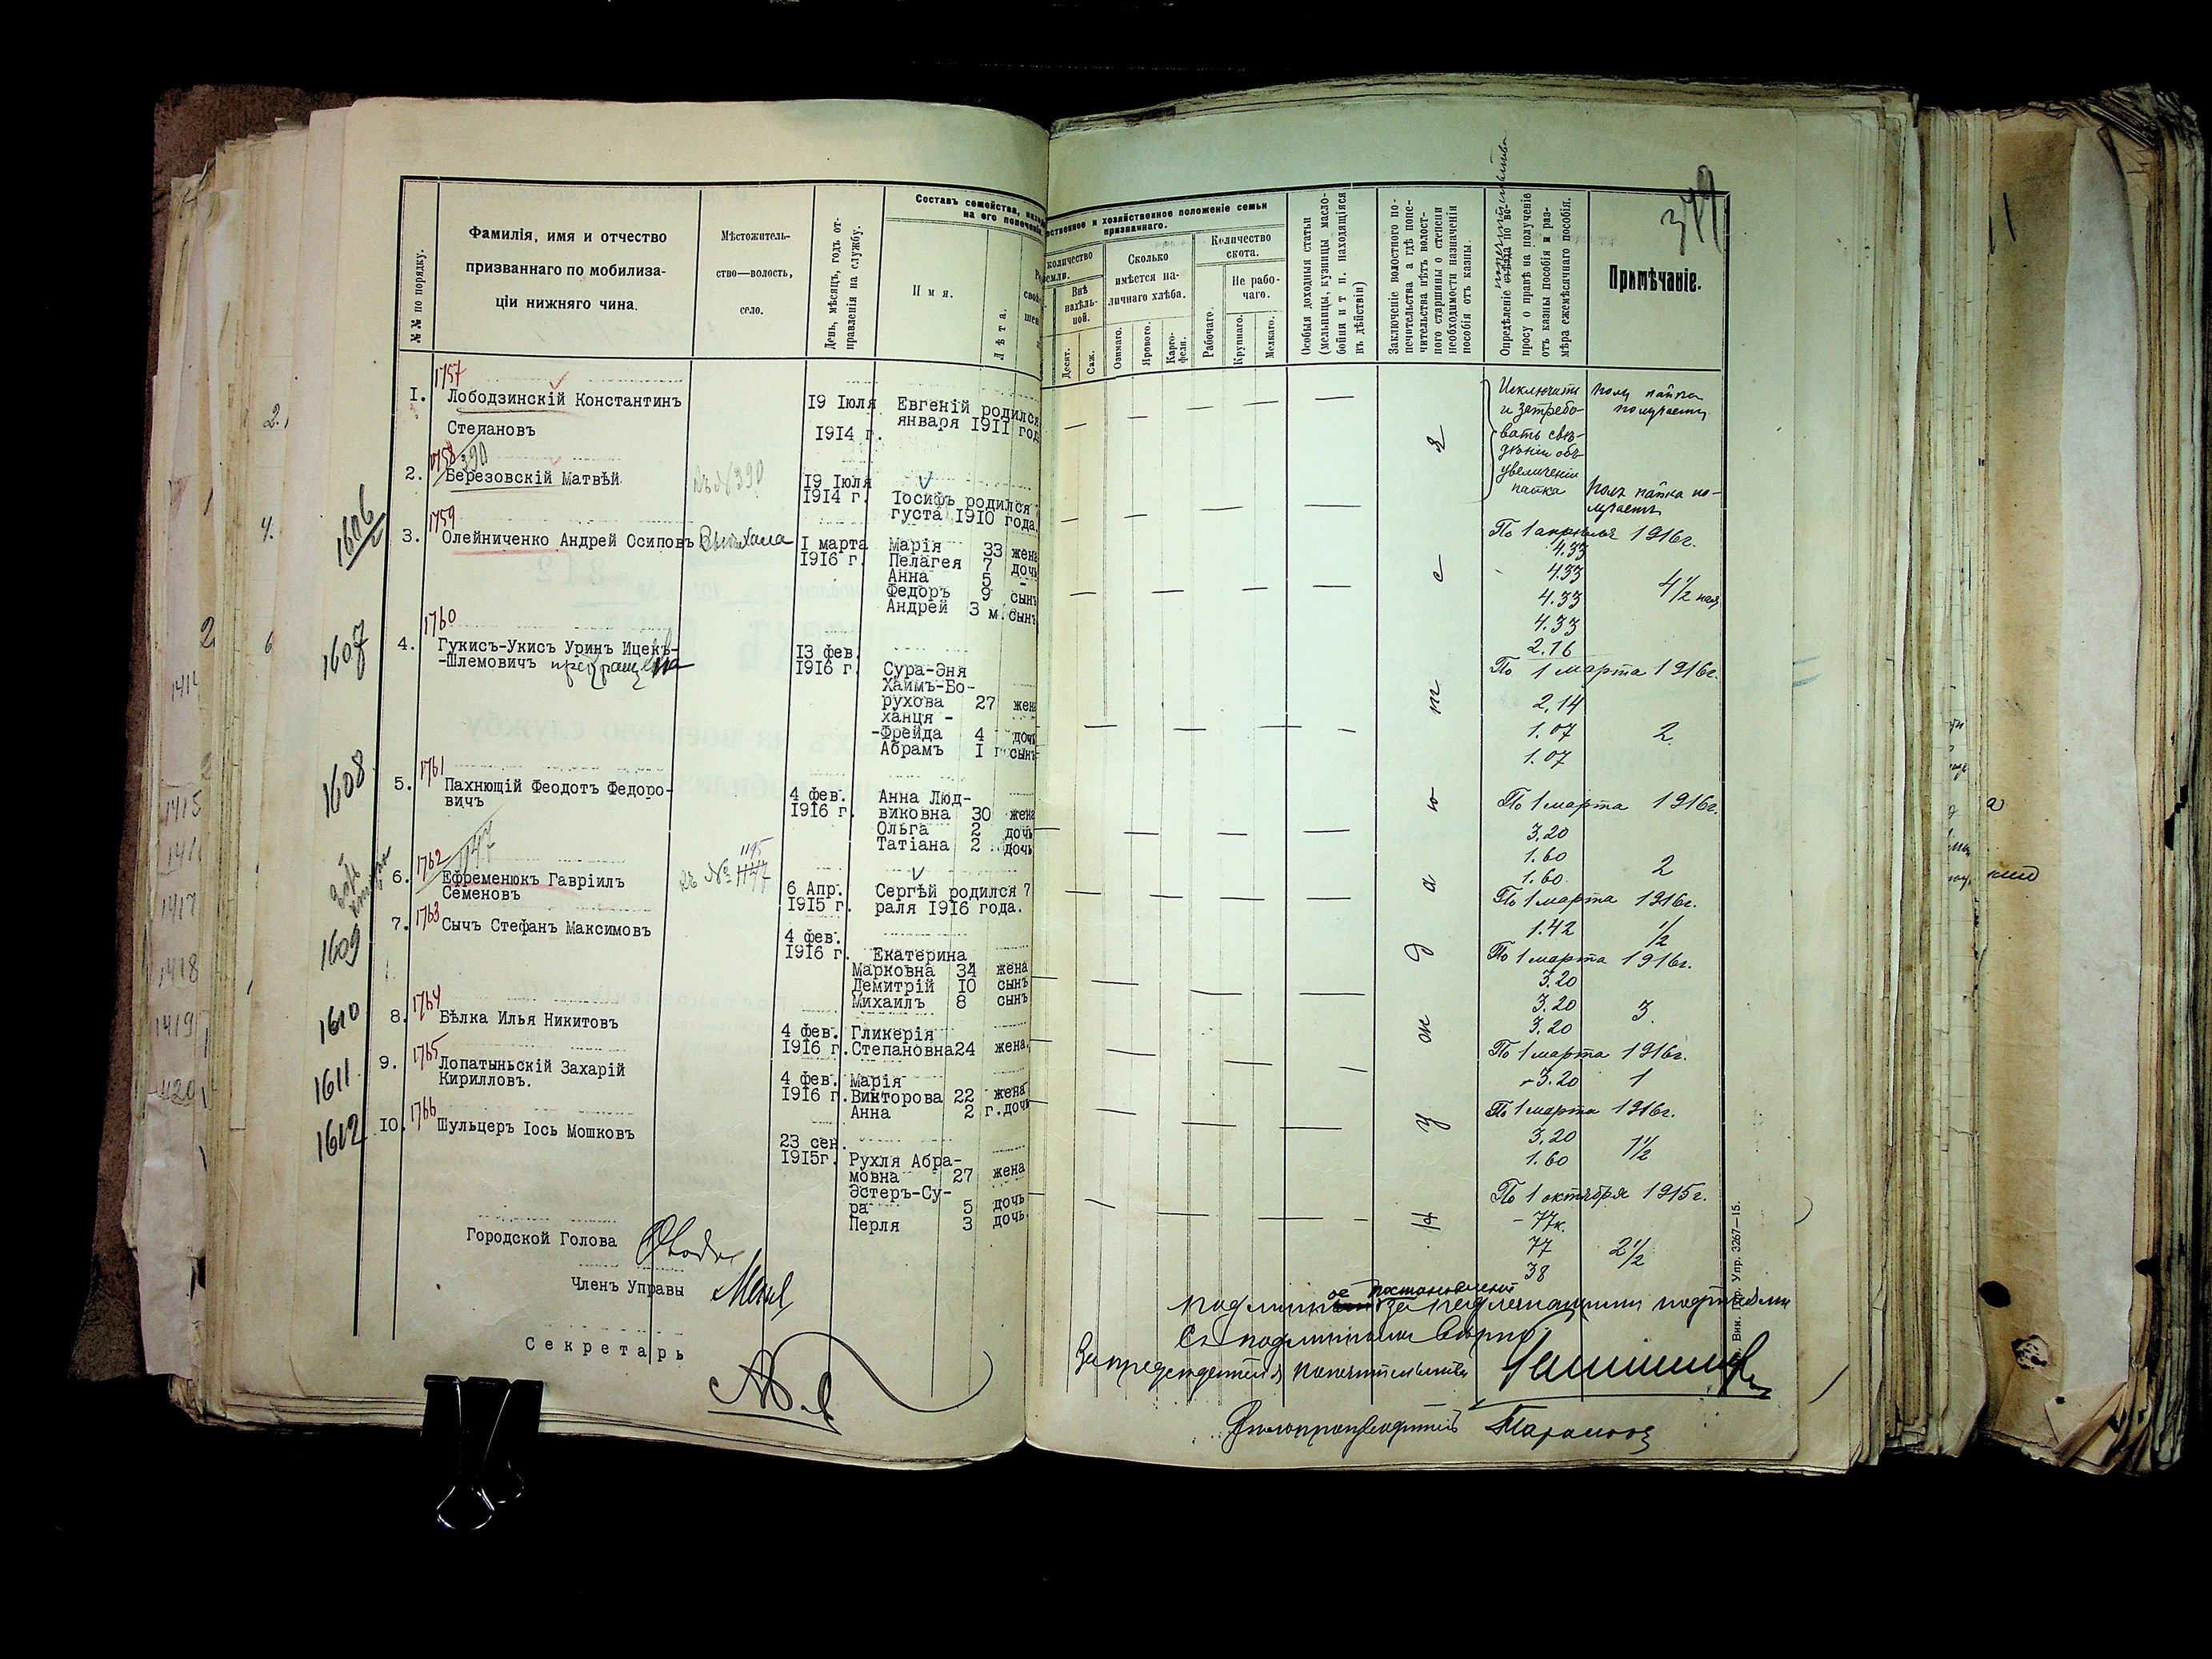 379
№№ по порядку.
Фамилія, имя и отчество
призваннаго по мобилиза-
ціи нижняго чина.
Мѣстожитель-
ство—волость,
село.
День, мѣсяцъ, годъ от-
правленія на службу.
Составъ семейства, наход
на его попеченіи
Имя.
Лѣта.
ественное и хозяйственное положеніе семьи
призваннаго.
количество
земли.
Внѣ
надѣль-
ной.
Десят.
Саж.
Сколько
имѣется на-
личнаго хлѣба.
Озимаго.
Ярового.
Карто-
феля.
Количество
скота.
Рабочаго.
Не рабо-
чаго.
Крупнаго.
Мелкаго.
Особыя доходныя статьи
(мельницы, кузницы масло-
бойни и т п. находящіяся
въ дѣйствіи)
Заключеніе волостного по-
печительства а гдѣ попе-
чительства нѣтъ волост-
ного старшины о степени
необходимости назначенія
пособія отъ казны.
Опредѣленіе съѣзда по во-
просу о правѣ на полученіе
отъ казны пособія и раз-
мѣра ежемѣсячнаго пособія.
Примѣчаніе.
1757
1. Лободзинскій Константинъ
Степановъ
19 Іюля
1914 г.
Евгеній родился
января 1911 год
Исключить
и затребо-
вать свѣ-
дѣнія объ
увеличеніи
пайка
полъ пайка
получаетъ
1758
390
2. Березовскій Матвѣй
къ № 390
19 Іюля
1914 г.
Іосифъ родился
густа 1910 года.
полъ пайка по-
лучаетъ
1606
1759
3. Олейниченко Андрей Осиповъ
Выѣхала
1 марта
1916 г.
Марія 33 жена
Пелагея 7 дочь
Анна 5 -
Федоръ 9 сынъ
Андрей 3 м. сынъ
По 1 апрѣля 1916г.
4.33
4.33
4.33
4.33
2.16
4½
1607
1760
4. Гукисъ-Укисъ Уринъ Ицекъ-
-Шлемовичъ прекращена
13 фев.
1916 г.
Сура-Эня
Хаимъ-Бо-
рухова 27 жена
ханця -
-Фрейда 4 дочь
Абрамъ 1 г сынъ
По 1 марта 1916г.
2.14
1.07
1.07
2
1608
1761
5. Пахнющій Феодотъ Федоро-
вичъ
4 фев.
1916 г.
Анна Люд-
виковна 30 жена
Ольга 2 дочь
Татіана 2 дочь
По 1 марта 1916г.
3.20
1.60
1.60
2
1762
1147
6. Ефременюкъ Гавріилъ
Семеновъ
къ № 1147
1195
6 Апр.
1915 г.
Сергѣй родился 7
раля 1916 года.
По 1 марта 1916г.
1.42
½
1609
1763
7. Сычъ Стефанъ Максимовъ
4 фев.
1916 г.
Екатерина
Марковна 34 жена
Демитрій 10 сынъ
Михаилъ 8 сынъ
По 1 марта 1916г.
3.20
3.20
3.20
3.
1610
1764
8. Бѣлка Илья Никитовъ
4 фев.
1916 г.
Гликерія
Степановна 24 жена.
По 1 марта 1916г.
3.20
1
1611
1765
9. Лопатыньскій Захарій
Кирилловъ.
4 фев.
1916 г.
Марія
Викторова 22 жена
Анна 2 г. дочь
По 1 марта 1916г.
3.20
1.60
1½
1612
1766
10. Шульцеръ Іось Мошковъ
23 сен.
1915г.
Рухля Абра-
мовна 27 жена
Эстеръ-Су-
ра 5 дочь
Перля 3 дочь.
По 1 октября 1915г.
- 77к.
77
38
2½
Нуждаются
Городской Голова
Членъ Управы
Секретарь
подлинное постановленіе за надлежащими подписями
Съ подлиннымъ вѣрно:
За предсѣдателя попечительства
Дѣлопроизводитель
Вин. Гор. Упр. 3267—15.
1414
1415
1416
1417
1418
1419
1420